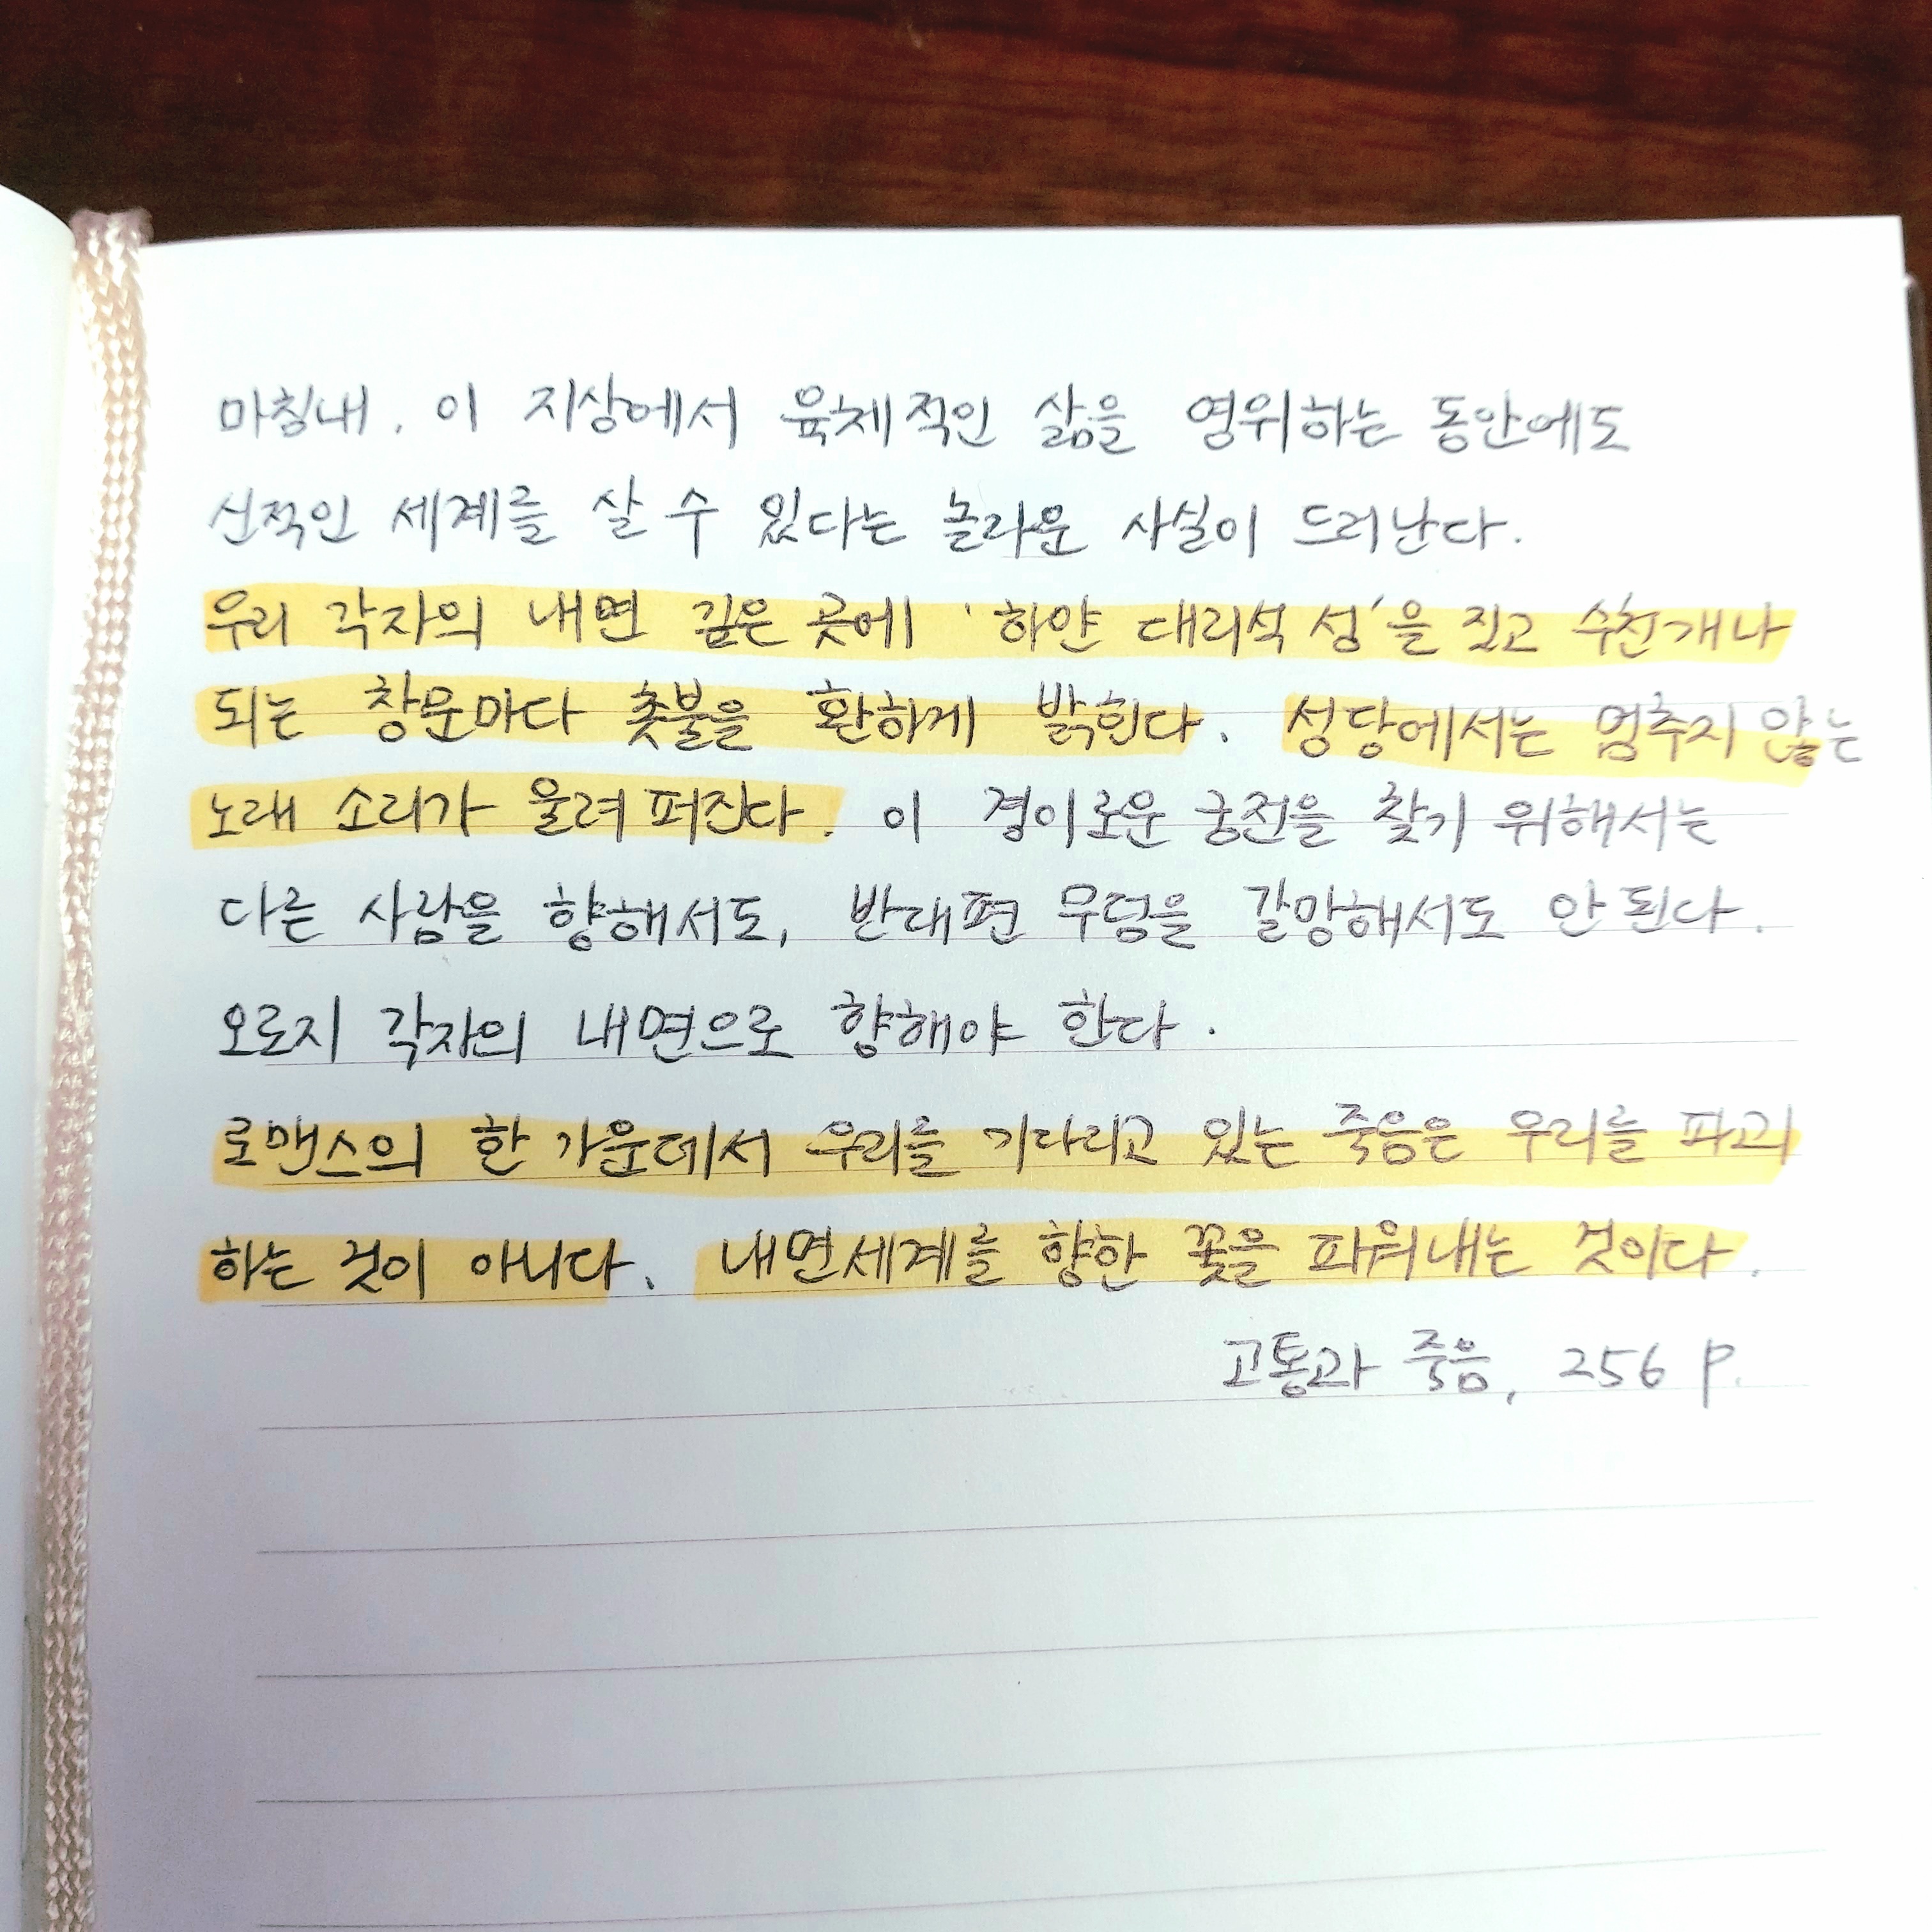 마침내, 이 지상에서 육체적인 삶을 영위하는 동안에도
신적인 세계를 살 수 있다는 놀라운 사실이 드러난다.
우리 각자의 내면 깊은 곳에 '하얀 대리석 성'을 짓고 수천개나
되는 창문마다 촛불을 환하게 밝힌다. 성당에서는 멈추지 않는
노래 소리가 울려 퍼진다. 이 경이로운 궁전을 찾기 위해서는
다른 사람을 향해서도, 반대편 무덤을 갈망해서도 안 된다.
오로지 각자의 내면으로 향해야 한다.
로맨스의 한 가운데서 우리를 기다리고 있는 죽음은 우리를 파괴
하는 것이 아니다. 내면세계를 향한 꽃을 피워내는 것이다.
고통과 죽음, 256 p.